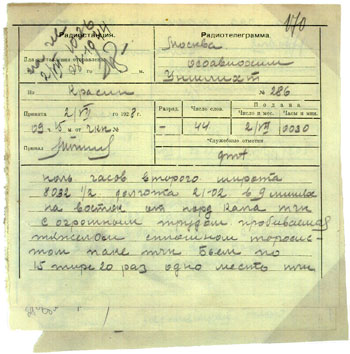 170
Радиостанция.
Радиотелеграмма.
Москва
Осоавиахим
Уншлихт
Красин
№ 286
Принята 2/VII го 1928 г.
09 ч. 15 м от
Принял
Разряд.
Число слов.
Подана
Число и мес.
Часы и мин.
44
2/VII
0030
Служебные отметки
gmt
ноль часов второго широта
8032 1/2 долгота 21-02 в 9 милях
на восток от норд Капа тчк
с огромным трудом пробиваемся
тяжелом сплошном торосис-
том паке тчк бьем по
15 тире 20 раз одно место тчк